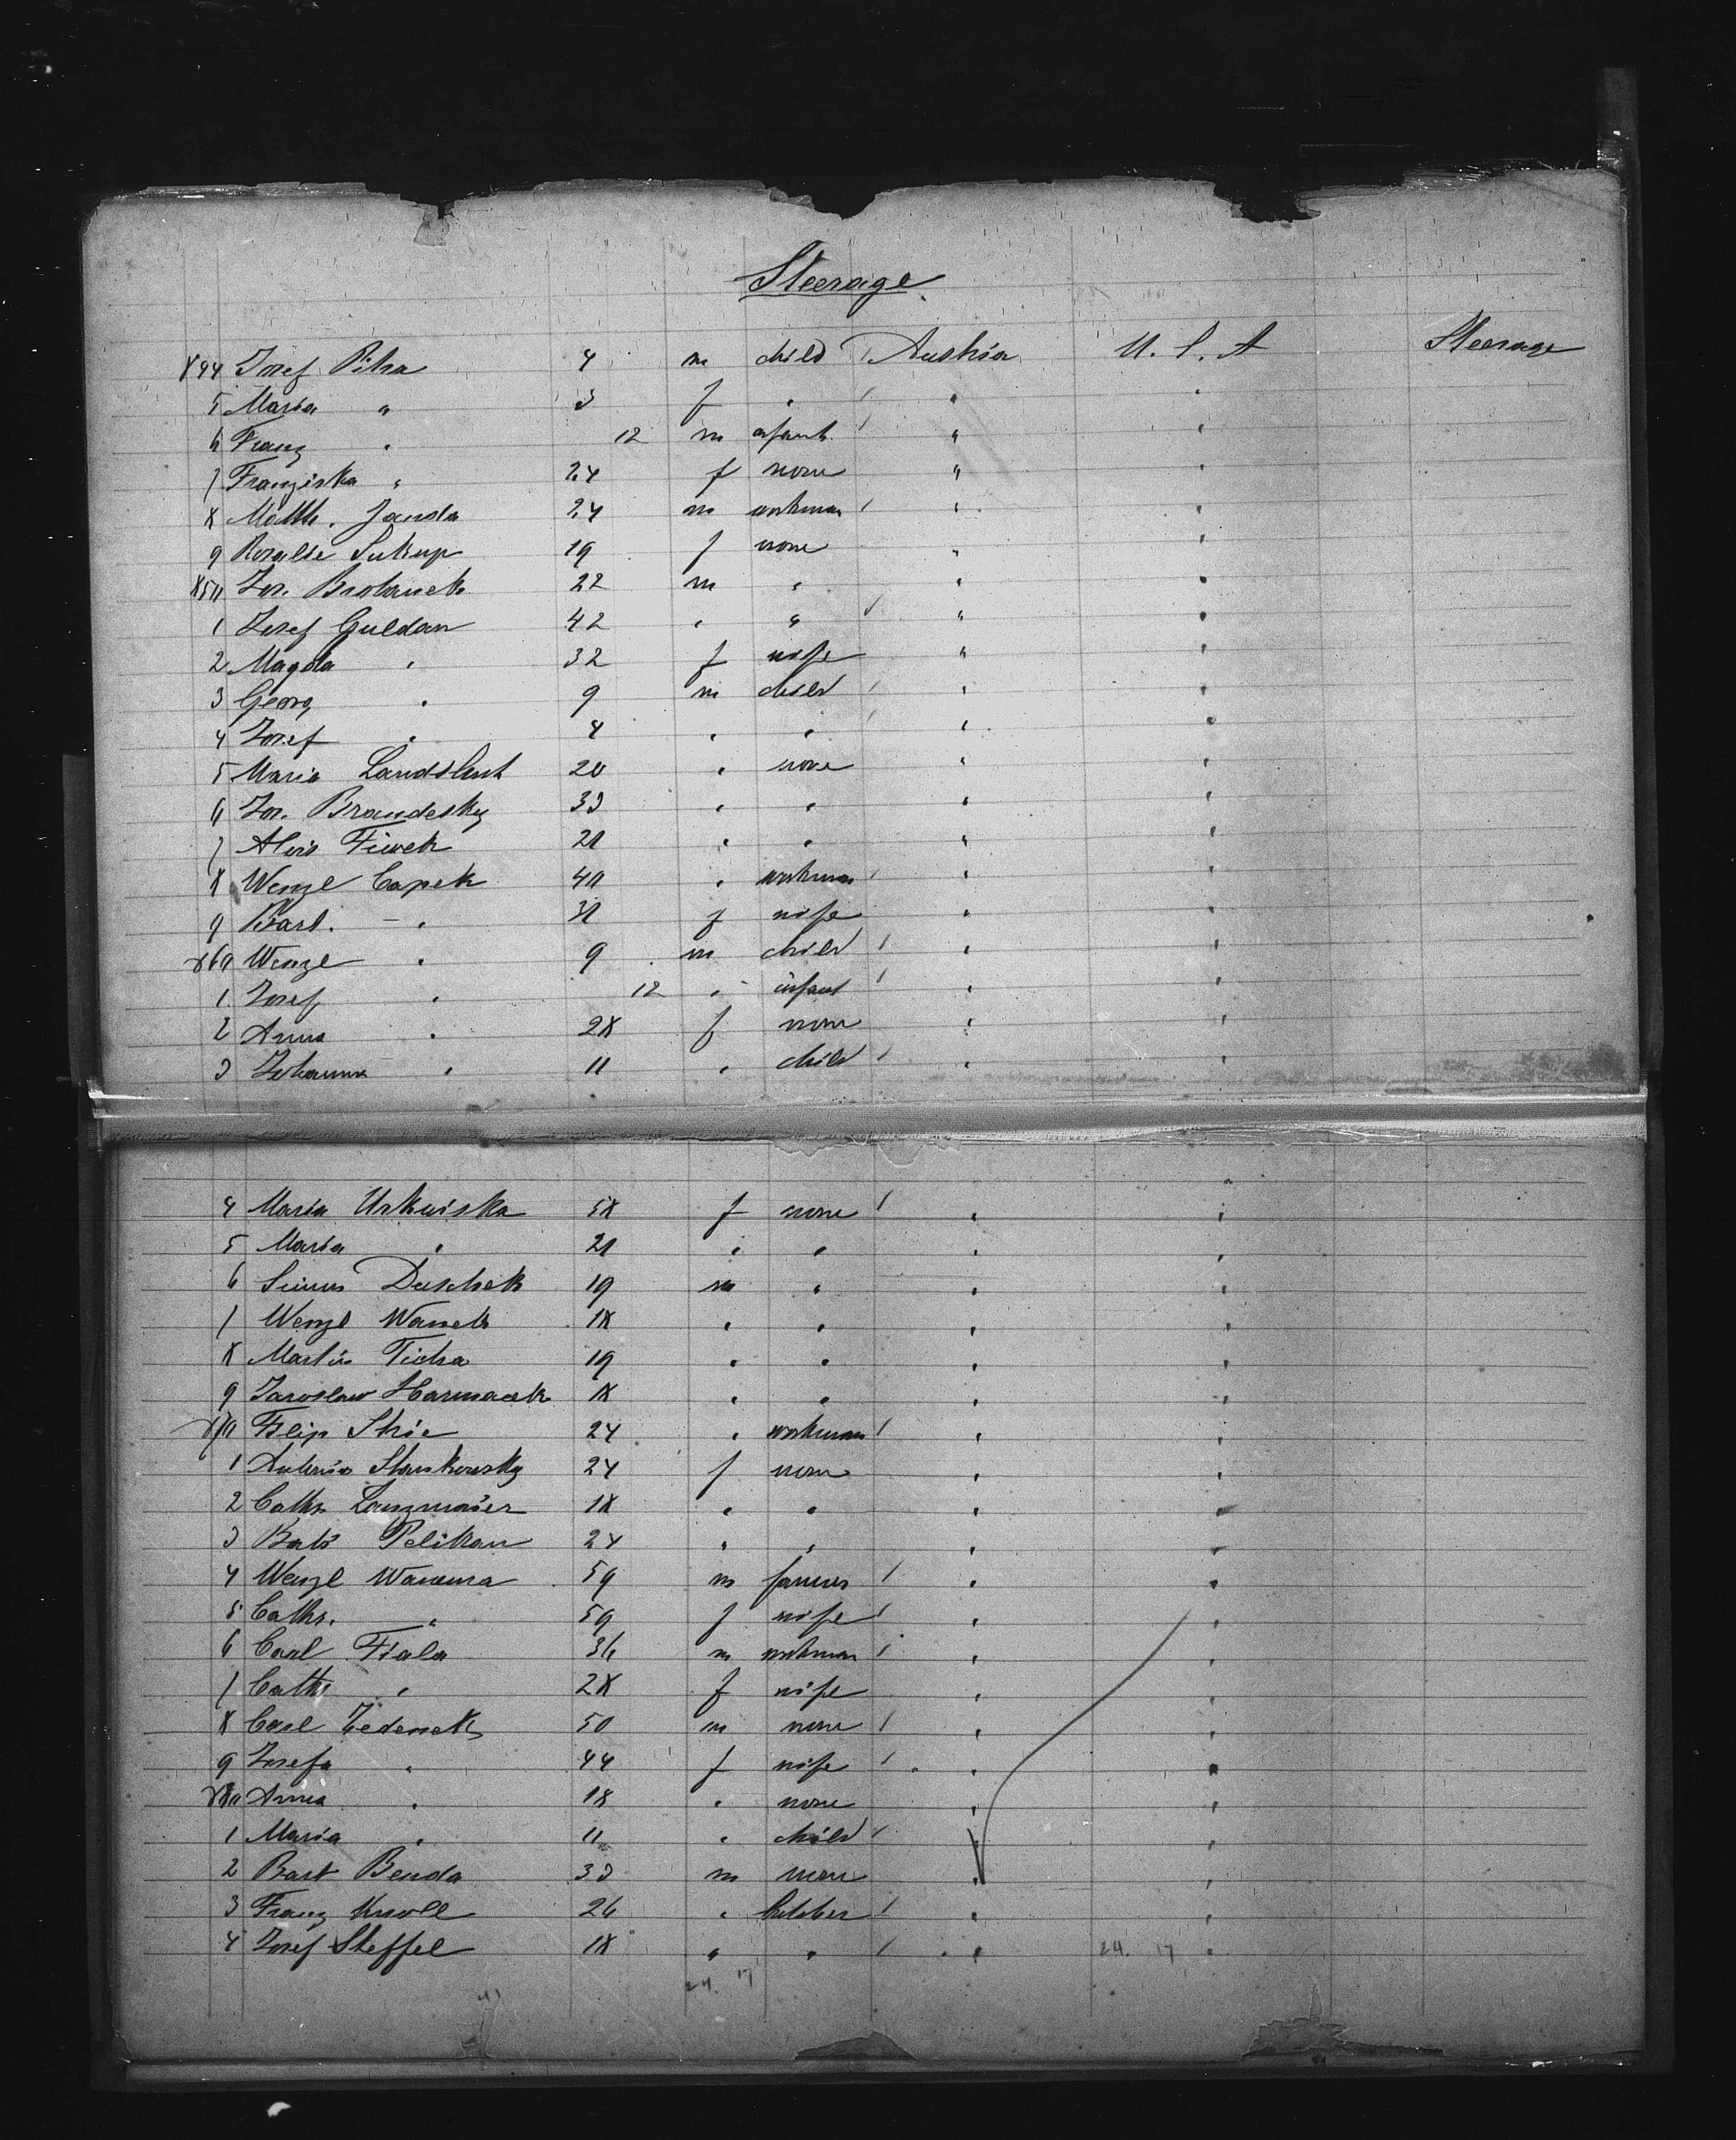 Steerage
844 Josef Pitra 4 m child / Austria U. S. A Steerage
5 Maria " 3 f " / " "
6 Franz " 12 m infant / " "
7 Franziska " 24 f none " "
8 Math. Janda 24 m workman / " "
9 Rosalie Sukup 19 f none " "
850 Jos. Brabanek 22 m " " "
1 Josef Guldan 42 " " / " "
2 Magda " 32 f wife " "
3 Georg " 9 m child / " "
4 Josef " 4 " " / " "
5 Maria Landshut 20 " none " "
6 Jos. Brandesky 33 " " " "
7 Alois Fiwek 21 " " " "
8 Wenzl Capek 40 " workman / " "
9 Barb. " 31 f wife " "
860 Wenzl " 9 m child / " "
1 Josef " 12 " infant / " "
2 Anna " 28 f none " "
3 Johanna " 11 " child / " "
4 Maria 58 f none / " "
5 Maria " 21 " " " "
6 Simon Duschek 19 m " " "
7 Wenzl Wanek 18 " " " "
8 Martin Ticha 19 " " " "
9 Jaroslaw Harmacek 18 " " " "
870 Filip 24 " workman / " "
1 Antonia Stankowsky 24 f none " "
2 Cath. Langmaier 18 " " " "
3 Barb Pelikan 24 " " " "
4 Wenzl Wawera 59 m farmer / " "
5 Cath. " 59 f wife / " "
6 Carl Fiala 36 m workman / " "
7 Cath " 28 f wife " "
8 Carl Zedenek 50 m none / " "
9 Josefa " 44 f wife / " "
880 Anna " 18 " none " "
1 Maria " 11 " child / " "
2 Bart Benda 33 m none " "
3 Franz Knoll 26 " butcher / " "
4 Josef Steffel 18 " " / " 24. 17 "
24. 17
41